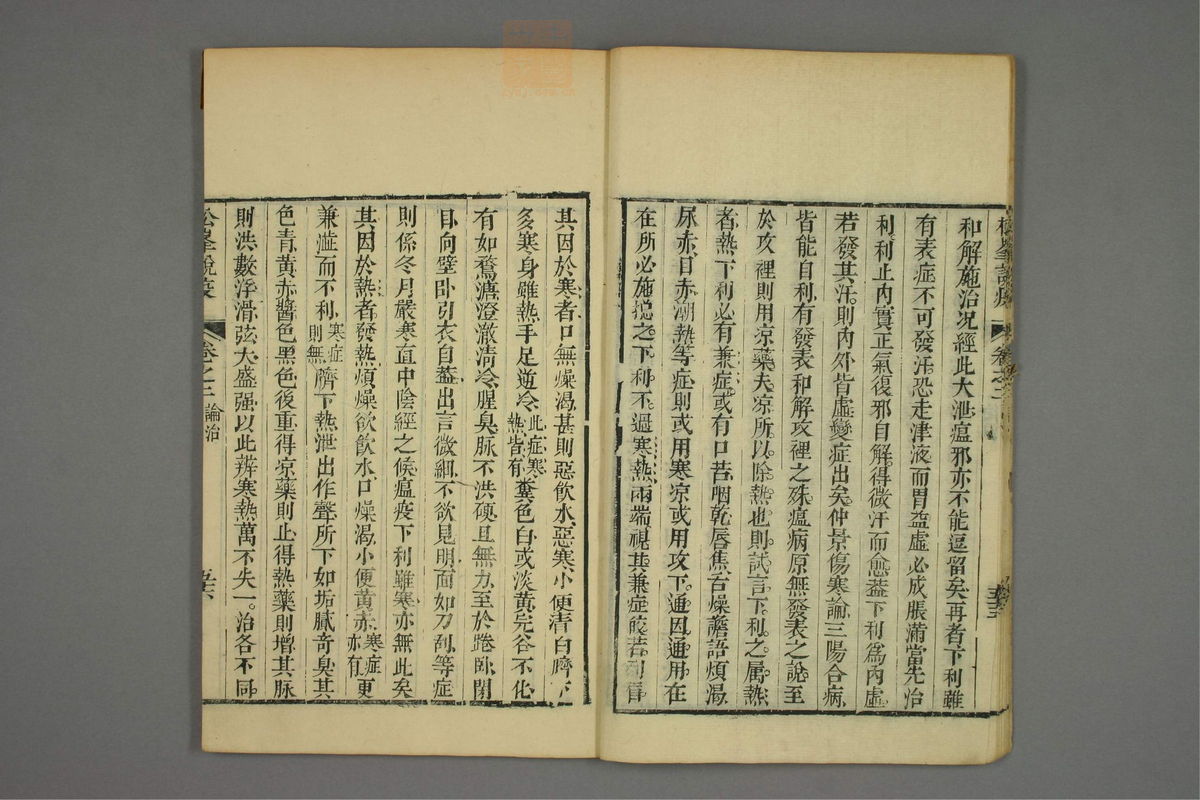 和解施治况經此大泄瘟邪亦不能逗留矣再者下利雖
有表症不可發汗恐走津液而胃益虛必成脹滿當先治
利利止內實正氣復邪自解得微汗而愈葢下利為內虛
若發其汗則內外皆虛變症出矣仲景傷寒論三陽合病
皆能自利有發表和解攻裡之殊瘟病原無發表之說至
於攻裡則用凉藥夫凉所以除熱也則試言下利之屬熱
者熱下利必有兼症或有口苦咽乾唇焦舌燥譫語煩渴
尿赤目赤潮熱等症則或用寒凉或用攻下通因通用在
在所必施揔之下利不過寒熱兩端視其兼症皎若列眉
其因於寒者口無燥渴甚則惡飲水惡寒小便清白臍下
多寒身雖熱手足逆冷此症寒熱皆有糞色白或淡黃完谷不化
有如鶩溏澄澈清冷腥臭脉不洪硬且無力至於踡卧閉
目向壁卧引衣自葢出言微細不欲見明面如刀刮等症
則係冬月嚴寒直中陰經之候瘟疫下利雖寒亦無此矣
其因於熱者發熱煩燥欲飲水口燥渴小便黃赤寒症亦有更
兼澁而不利寒症則無臍下熱泄出作聲所下如垢膩奇臭其
色青黃赤醬色黑色後重得凉藥則止得熱藥則增其脉
則洪數浮滑弦大盛强以此辨寒熱萬不失一治各不同
松峯說疫 卷之三 論治 五六